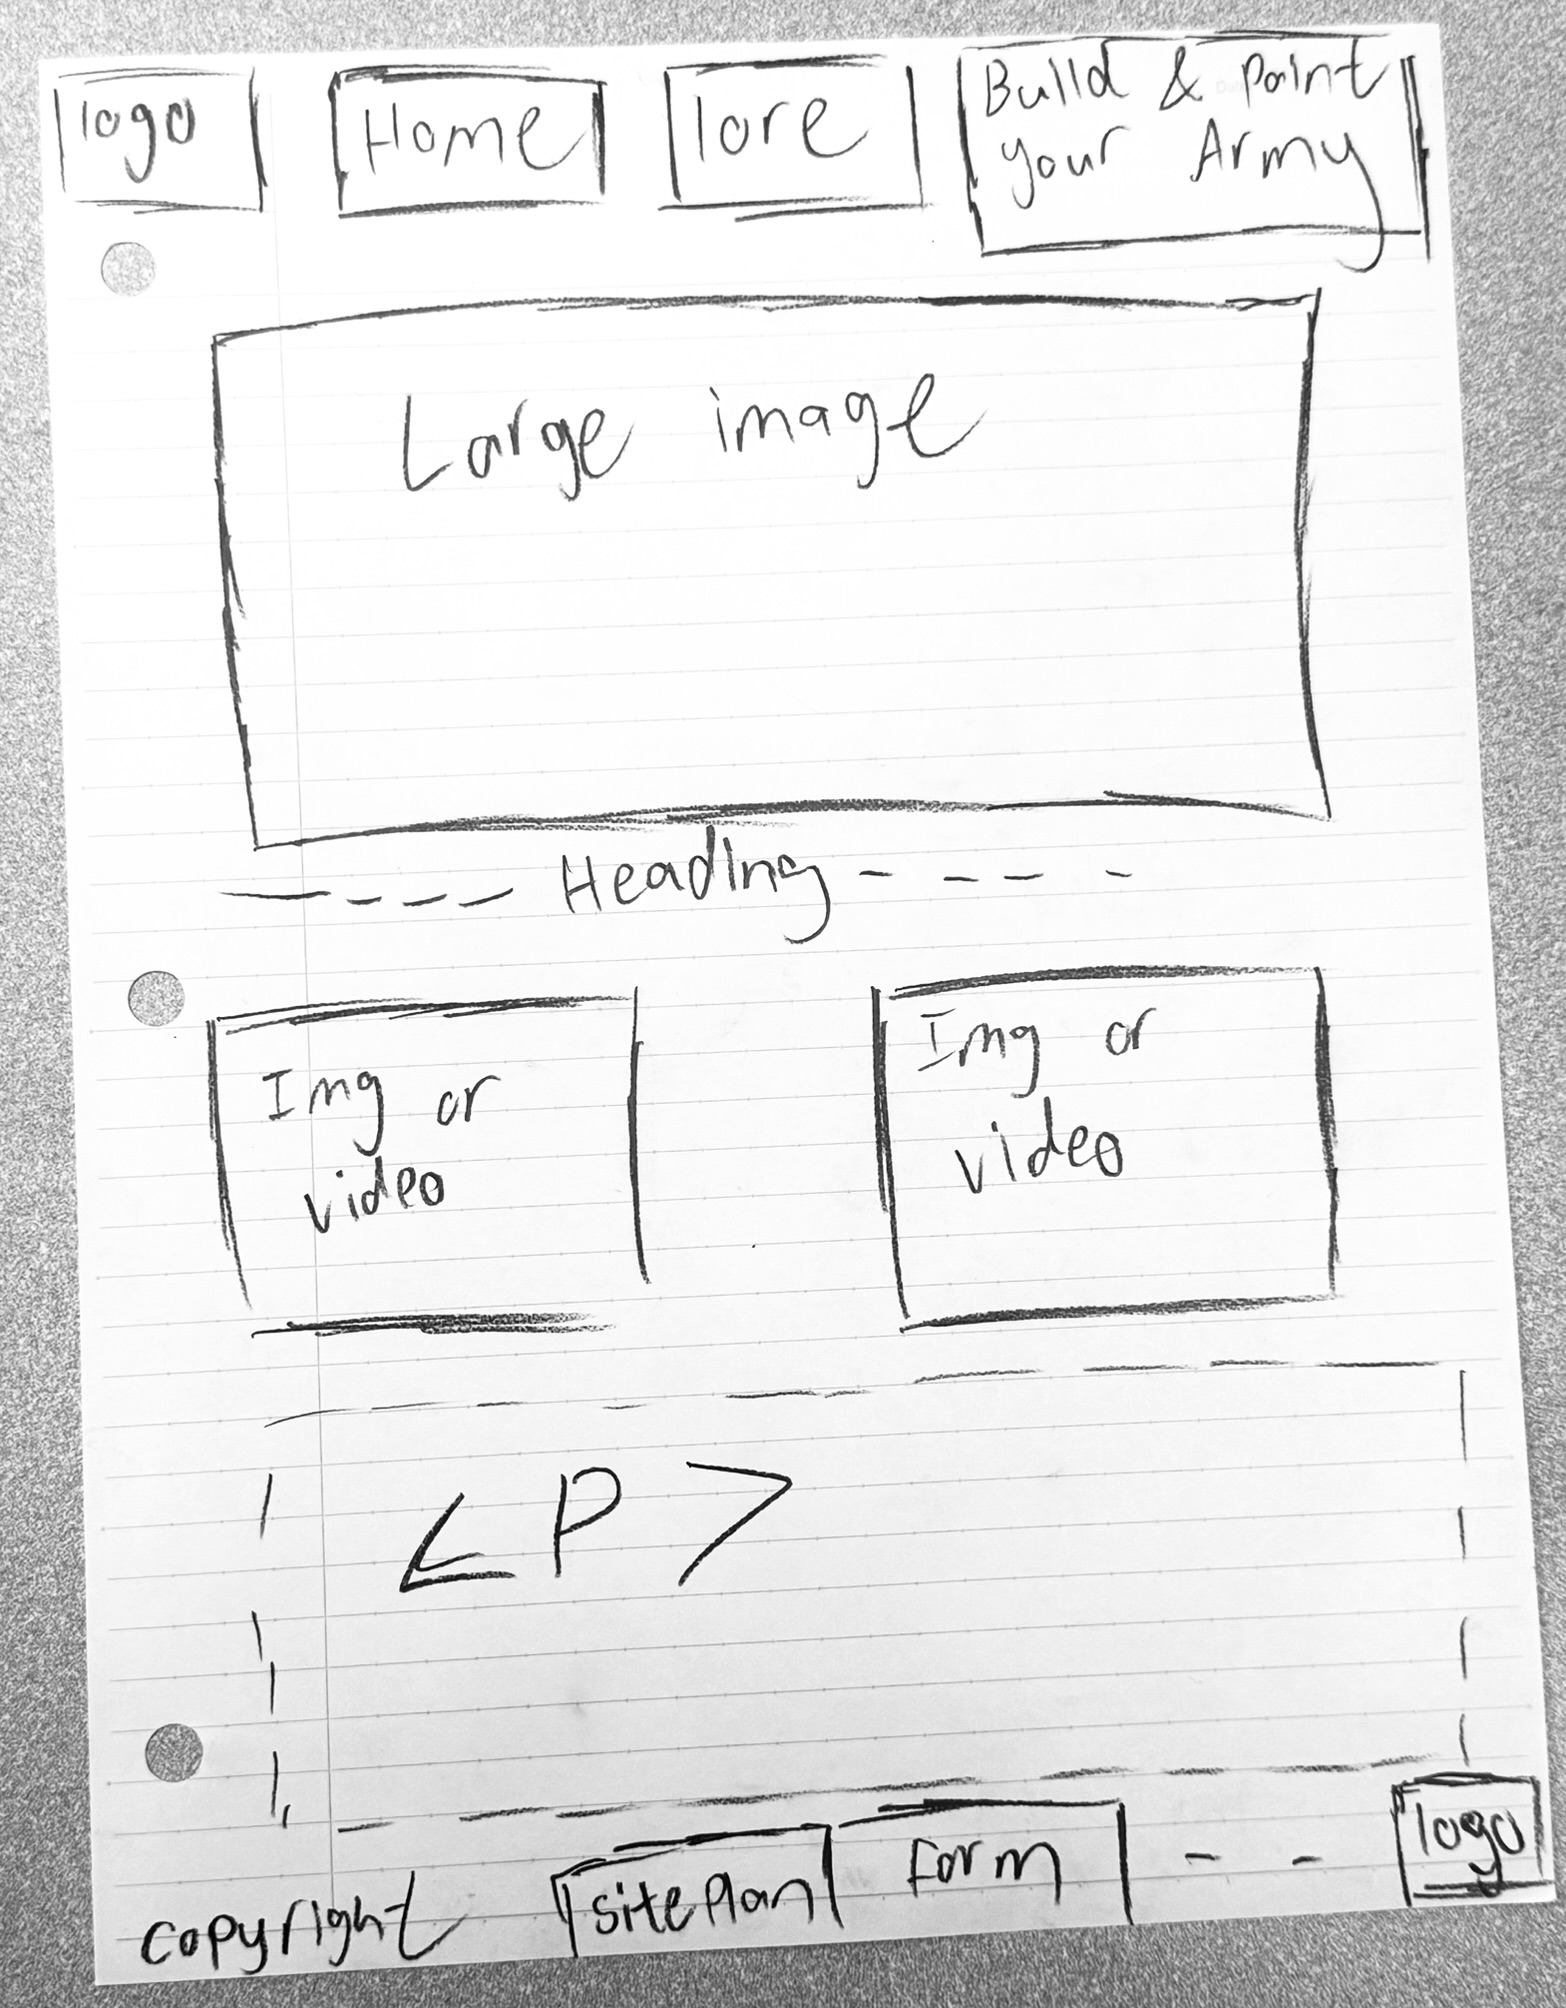 logo
Home
lore
Build & Paint
your Army
Large image
Heading
Img or
video
Img or
video
<P>
copyright
siteplan
Form
logo